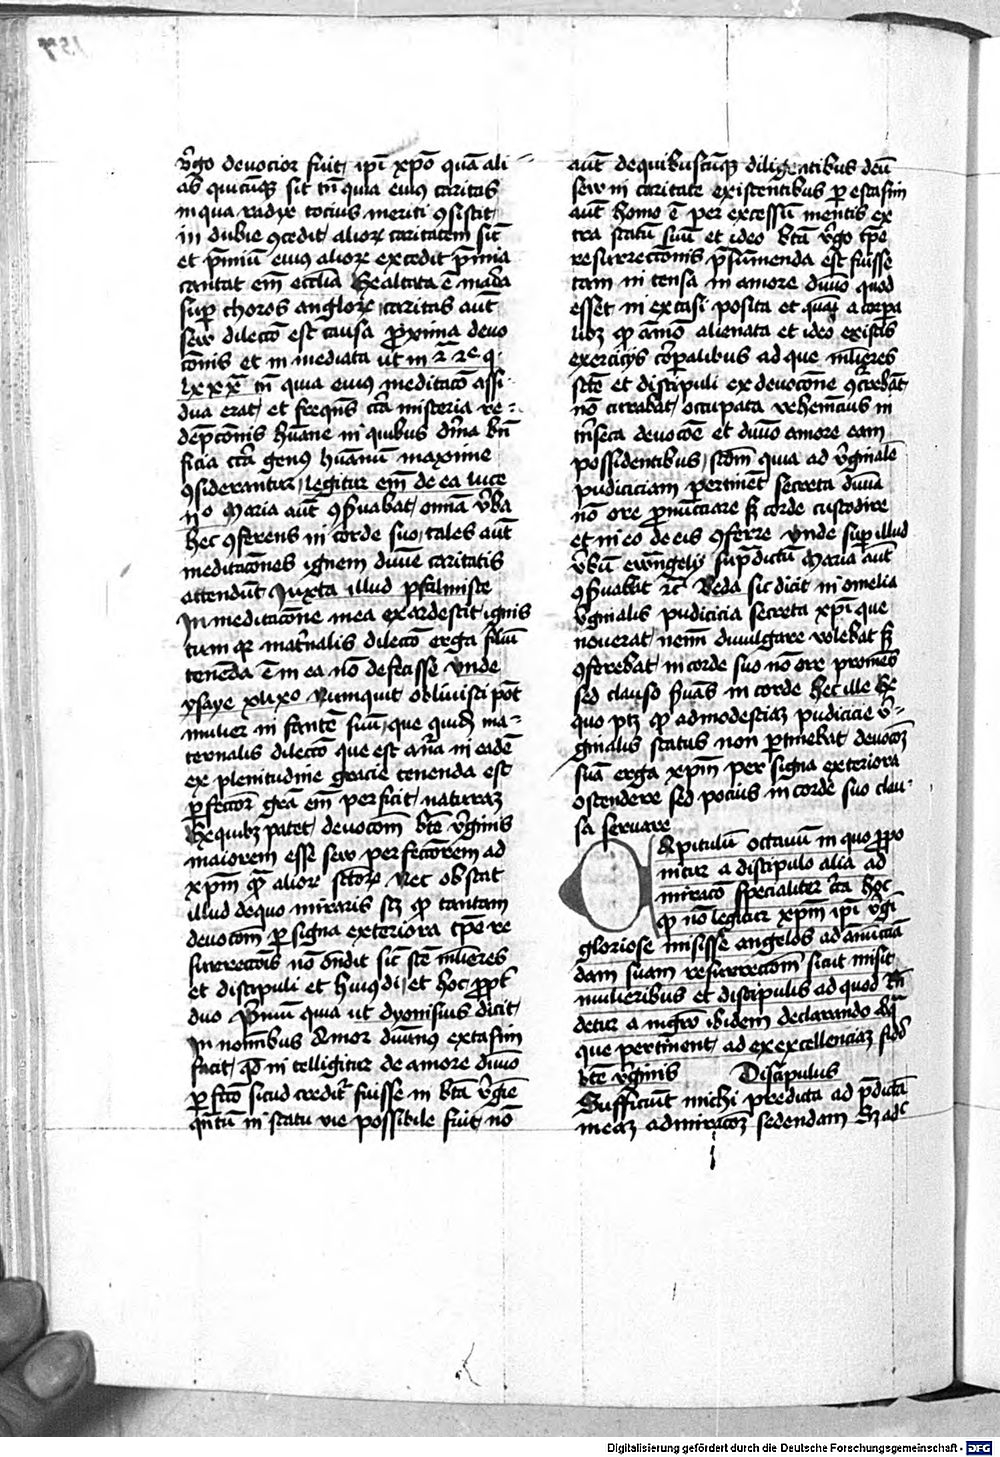 v̄go deuocior fuit ip̄i xp̄o quā ali
ab quicūqꝫ sit tn̄ quia eius caritas
in qua radix tocius meriti ꝯsistit
in dubie ꝯcedit alioꝝ caritatem sic̄
et p̄miū eius alioꝝ excedit p̄mia
cantat em̄ eccl̄ia Exaltata ē
sup̄ choros angloꝝ caritas aut̄
seu dilectō est causa ꝓxima deuo
cōnis et in mediata ut in
lxxx tn̄ quia eius meditacō assi
dua erat et freqn̄s cc̄a misteria re
dēpcōnis hūane in quibus dīna bn̄
ficia cc̄a genus hūanū maxime
ꝯsiderantur legitur em̄ de ea luce
Maria aut̄ ꝯẜuabat om̄ia v̄ba
hec ꝯferens in corde suo tales aut̄
meditacōnes ignem diuine caritatis
attendūt Iuxta illud psalmiste
In meditacōne mea exardescit ignis
tum qꝛ mat̄nalis dilectō erga filiū
tenēda ē in ea nō defecisse vnde
ysaye xlixo Numquit obliuisci pōt
mulier in fantē suū que quidē ma
ternalis dilectō que est in eadē
ex plenitudine gracie tenenda est
ꝑfectioꝝ grā em̄ perficit naturaꝫ
Ex quibꝫ patet deuocōm btē v̄ginis
maiorem esse seu perfectiorem ad
xp̄m qꝫ alioꝝ sctōꝝ Nec obstat
illud dequo miraris scꝫ ꝙ tantam
deuocōm ꝑ signa exteriora tp̄e re
surreccōis nō ōndit sic̄ scē mlieres
et discipuli et huiusdi et hoc ꝓpt̄
duo p̄miū quia ut dyonisius dicit
In nomībus Amor diuinus extasim
facit qd̄ in telligitur de amore diuīo
ꝑfcō sicud credit̄ fuisse in btā v̄gīe
qn̄tū in statu vie possibile fuit nō
aut̄ dequibuscūqꝫ diligentibus deū
seu in caritate existentibus ꝑ extasim
aut̄ homo ē per excessū mentis ex
tra statū suū et ideo btā v̄go tp̄e
resurrectionis p̄sūmenda est fuisse
tam in tensa in amore diuīo quod
esset in extasi posita et quasi a corpa
libꝫ ꝙ aīmo alienata et ideo existēs
exercicijs corꝑalibus ad que mlieres
scē et discipuli ex deuocōne ꝯcrebāt
nō curabat occupata vehemēcius in
tn̄seca deuocōe et diuīo amore eam
possidentibus sc̄dm quia ad v̄ginale
pudiciciam pertinet secreta diuīa
nō ore ꝓnūcciare sꝫ corde custodire
et in eo de eis ꝯferre vnde sup̄ illud
v̄bū ewāgelij sup̄dictū Maria aut̄
ꝯẜuabat ꝛc̄ Beda sic dicit in omelia
v̄ginalis pudicicia secreta xp̄i que
nouerat nemi diuulgare volebat sꝫ
ꝯferebat in corde suo nō ore promēs
sed clauso ẜuās in corde hec ille Ex
quo ptꝫ ꝙ ad modestiaꝫ pudicicie v̄
ginalis status non ꝑtinebat deuocōꝫ
suā erga xp̄m per signa exteriora
ostendere sed pocius in corde suo clau
sa seruare
Capitulū octauū in quo ꝓpo
nitur a discipulo alia ad
miracō specialiter cc̄a hoc
ꝙ nō legitur xp̄m ip̄i v̄gi
gloriose misisse angelos ad anūccia
dam suam resurreccōm sicut misit
mulieribus et discipulis ad quod rn̄
detur a mgrō ibidem declarando
que pertinent ad ex excellenciaꝫ fidei
btē v̄ginis Discipulus
Sufficiūt michi predicta ad p̄dictā
meaꝫ admiracōꝫ sedendam Sꝫ adc̄
Digitalisierung gefördert durch die Deutsche Forschungsgemeinschaft - DFG